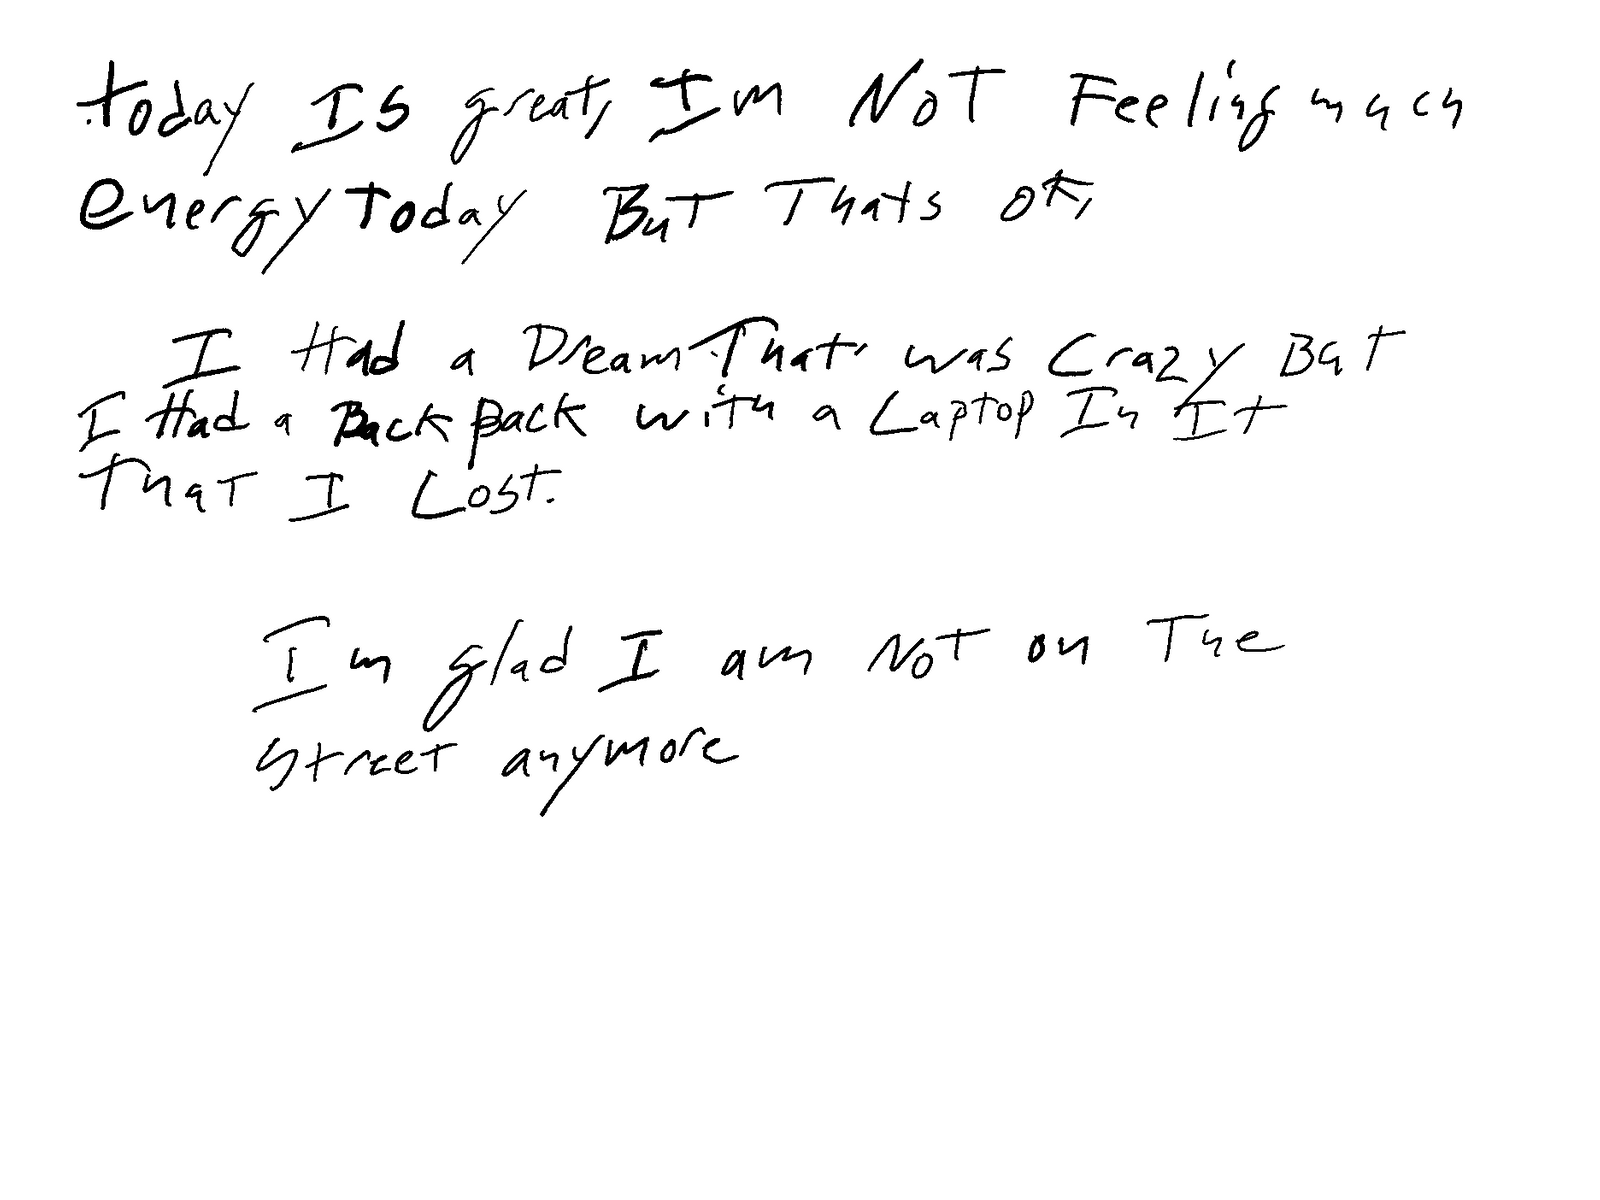 today Is great, Im Not Feeling much
energy today But Thats ok,
I Had a Dream That was Crazy But
I Had a Back pack with a Laptop In It
That I Lost.
Im glad I am Not on The
street anymore